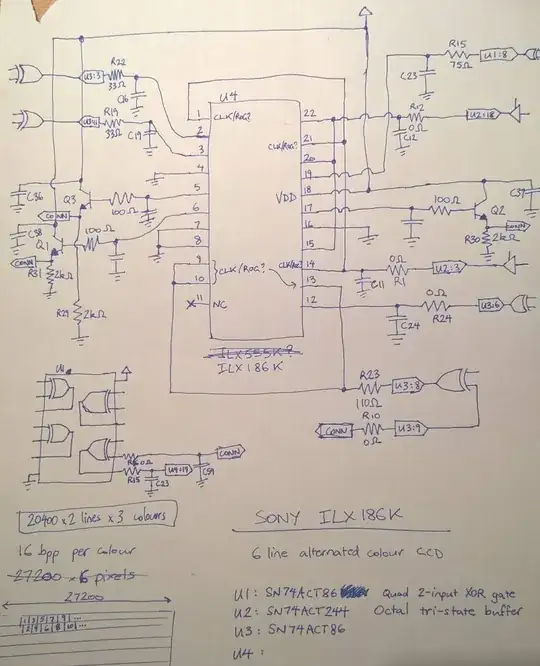 R15
75Ω
U1:8
R22
33Ω
U3:3
C23
U4
C16
R12
0Ω
U2:18
R19
33Ω
U3:11
C19
C12
1
CLK/ROG?
22
2
21
CLK/ROG?
3
20
4
19
VDD
18
5
17
6
16
7
15
8
9
14
CLK/ROG?
10
CLK/ROG?
13
11
NC
12
C36
Q3
CONN
100Ω
C38
Q1
100Ω
CONN
R31
2kΩ
R29
2kΩ
100Ω
C37
Q2
CONN
R30
2kΩ
0Ω
R1
U2:3
C11
0Ω
R24
U3:6
C24
ILX555K?
ILX186K
R23
110Ω
U3:8
R10
0Ω
CONN
U3:9
U1
0Ω
CONN
R15
C23
U4:19
C59
20400 x 2 lines x 3 colours
16 bpp per colour
27200 x 6 pixels
27200
1 3 5 7 9 ...
2 4 6 8 10 ...
SONY ILX186K
6 line alternated colour CCD
U1: SN74ACT86 Quad 2-input XOR gate
U2: SN74ACT244 Octal tri-state buffer
U3: SN74ACT86
U4: